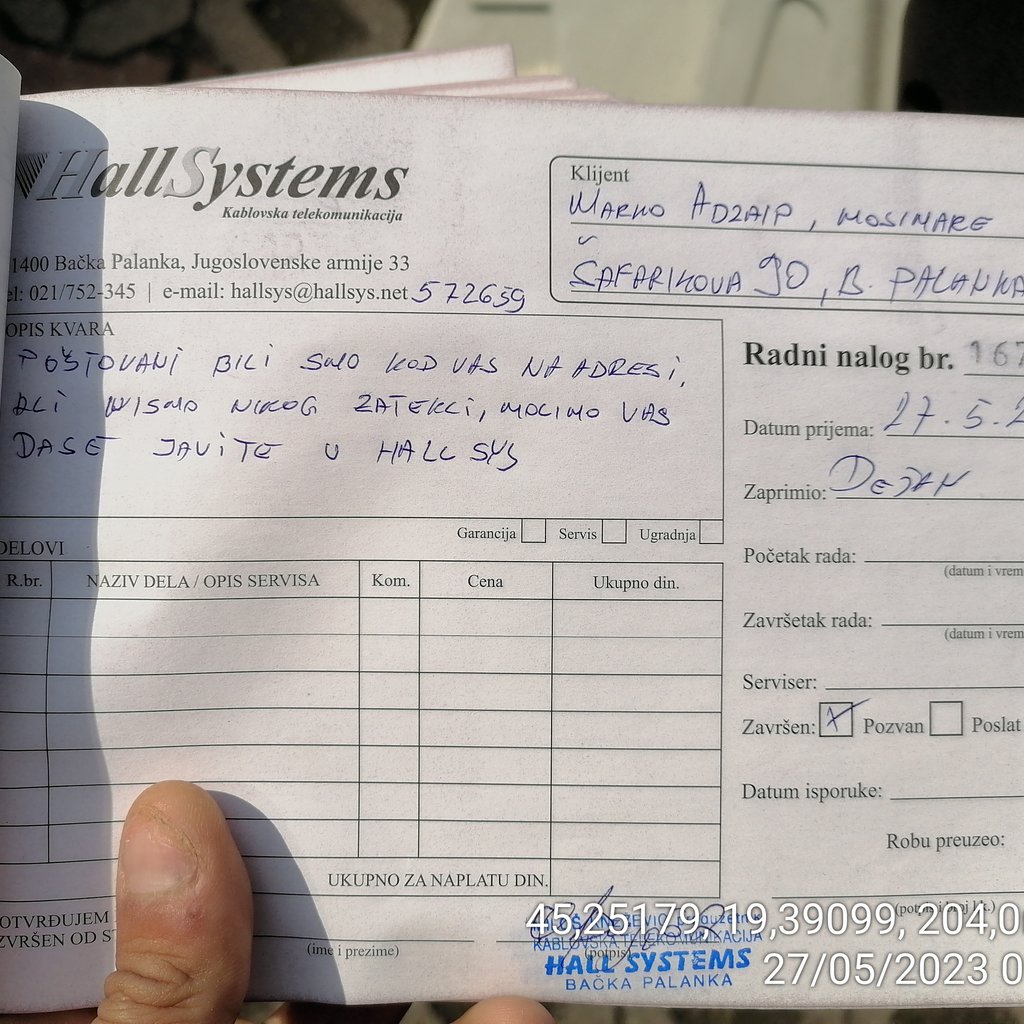 HallSystems
Kablovska telekomunikacija
1400 Bačka Palanka, Jugoslovenske armije 33
el: 021/752-345 | e-mail: hallsys@hallsys.net 572659
Klijent
MARKO ADZAIP, MOSINARE
ŠAFARIKOVA 90, B. PALANKA
OPIS KVARA
POŠTOVANI BILI SMO KOD VAS NA ADRESI,
ALI NISMO NIKOG ZATEKLI, MOLIMO VAS
DA SE JAVITE U HALL SYS
Garancija Servis Ugradnja
Radni nalog br. 167
Datum prijema: 27.5.2
Zaprimio: DEJAN
Početak rada:
(datum i vrem
Završetak rada:
(datum i vrem
Serviser:
Završen: X Pozvan Poslat
Datum isporuke:
Robu preuzeo:
DELOVI
R.br. NAZIV DELA / OPIS SERVISA Kom. Cena Ukupno din.
UKUPNO ZA NAPLATU DIN.
OTVRĐUJEM
ZVRŠEN OD
(ime i prezime)
(potpis)
KABLOVSKA TELEKOMUNIKACIJA
HALL SYSTEMS
BAČKA PALANKA
45,25179, 19,39099, 204,0
27/05/2023 0